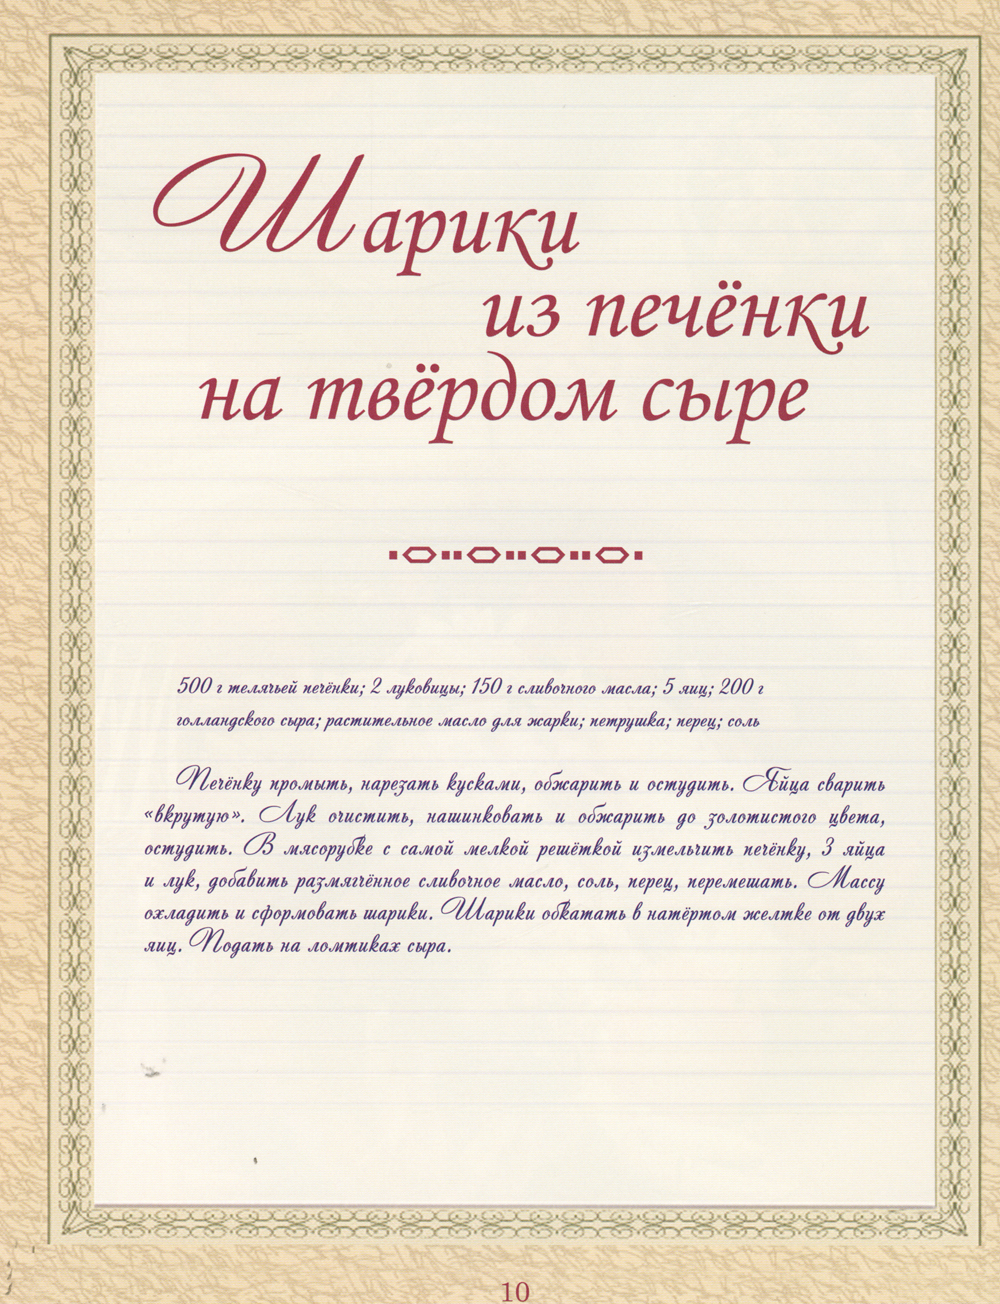 Шарики
из печёнки
на твёрдом сыре
500 г телячьей печёнки; 2 луковицы; 150 г сливочного масла; 5 яиц; 200 г
голландского сыра; растительное масло для жарки; петрушка; перец; соль
Печёнку промыть, нарезать кусками, обжарить и остудить. Яйца сварить
«вкрутую». Лук очистить, нашинковать и обжарить до золотистого цвета,
остудить. В мясорубке с самой мелкой решёткой измельчить печёнку, 3 яйца
и лук, добавить размягчённое сливочное масло, соль, перец, перемешать. Массу
охладить и сформовать шарики. Шарики обкатать в натёртом желтке от двух
яиц. Подать на ломтиках сыра.
10